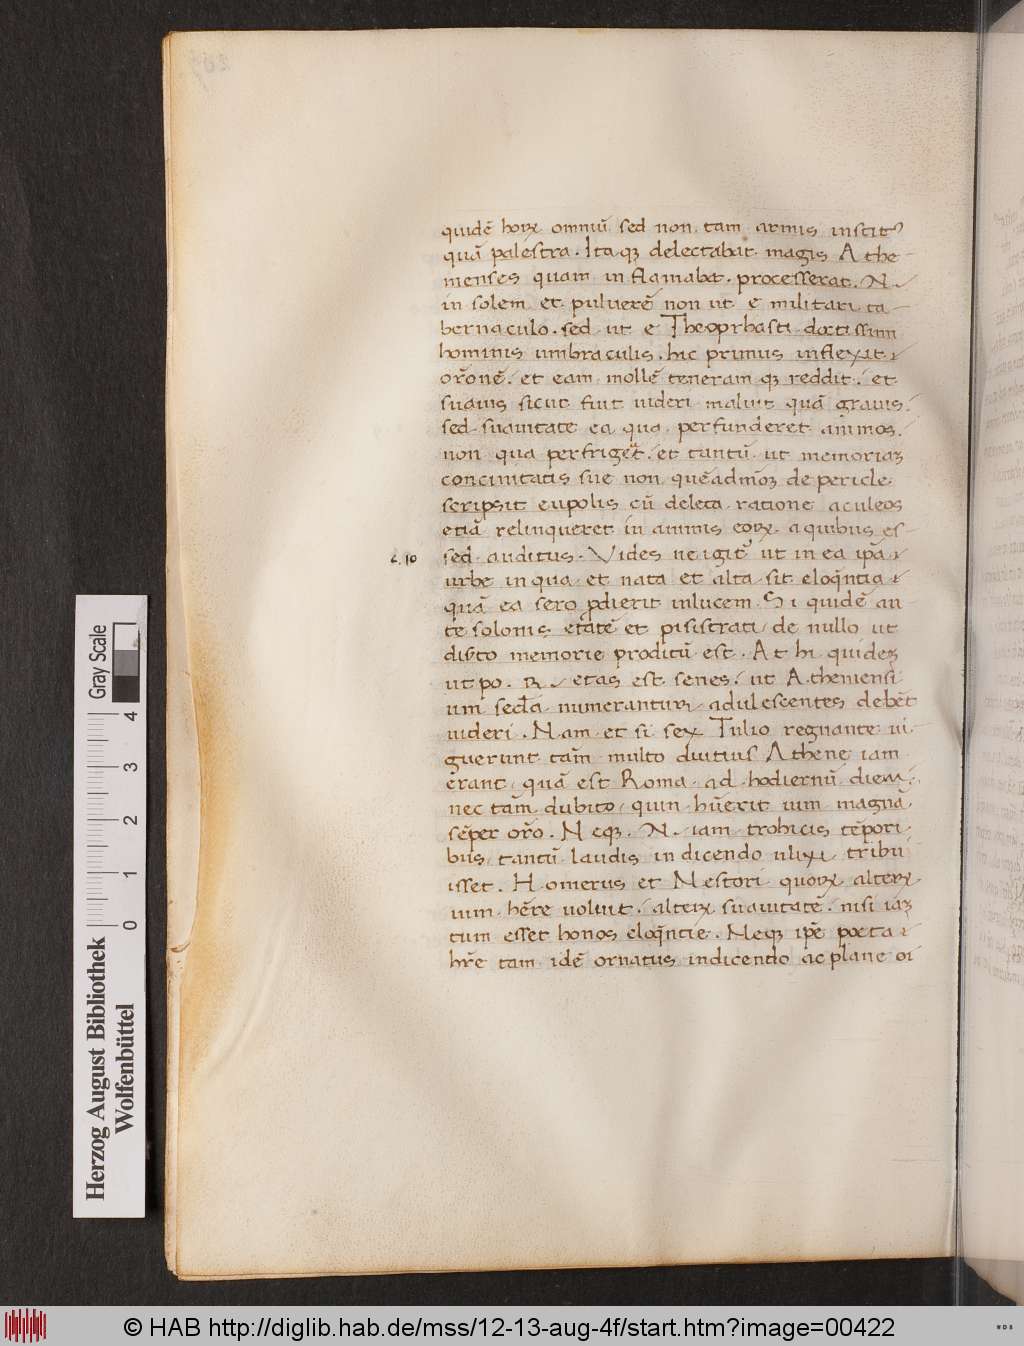 quidē hoꝝ omniū sed non tam armis institꝰ
quā palestra. Itaqꝫ delectabat magis Athe-
nienses quam inflamabat. processerat. N.
in solem et puluerē non ut e militari ta-
bernaculo. sed ut e Theoprhasti doctissimi
hominis umbraculis. hic primus inflexit
or̄onē. et eam mollē teneramqꝫ reddit. et
suauis sicut fuit uideri maluit quā grauis.
sed suauitate ea qua perfunderet animos.
non qua perfriget. et tantū ut memoriaꝫ
concinitatis sue non quēadmoꝫ de pericle
scripsit eupolis cū delecta ratione aculeos
etiā relinqueret in animis eoꝝ aquibus es
c. 10
sed auditus. Vides ne igit̄ ut in ea ip̄a
urbe in qua et nata et alta sit eloqn̄tia
quā ea sero ꝓdierit inlucem. Si quidē an-
te solonis etatē et pisistrati de nullo ut
diʒ̄to memorie proditū est. At hi quideꝫ
ut po. R. etas est senes. ut Atheniensi
um secl̄a numerantur adulescentes debēt
uideri. Nam et si sex Tulio regnante ui
guerunt tam̄ multo diutius Athēne iam
erant quā est Roma ad hodiernū diem.
nec tam̄ dubito quin hūerit uim magnā
sēper or̄o. Neqꝫ. N. iam trohicis tēpori
bus tantū laudis in dicendo ulixi tribu
isset. Homerus et Nestori quoꝝ alteꝝ
uim hēre uoluit. alteꝝ suauitatē. nisi iaꝫ
tum esset honos eloqn̄tie. Neqꝫ ip̄e poeta
hr̄e tam idē ornatus indicendo ac plane oi
Gray Scale
4
3
2
1
0
Herzog August Bibliothek
Wolfenbüttel
© HAB http://diglib.hab.de/mss/12-13-aug-4f/start.htm?image=00422